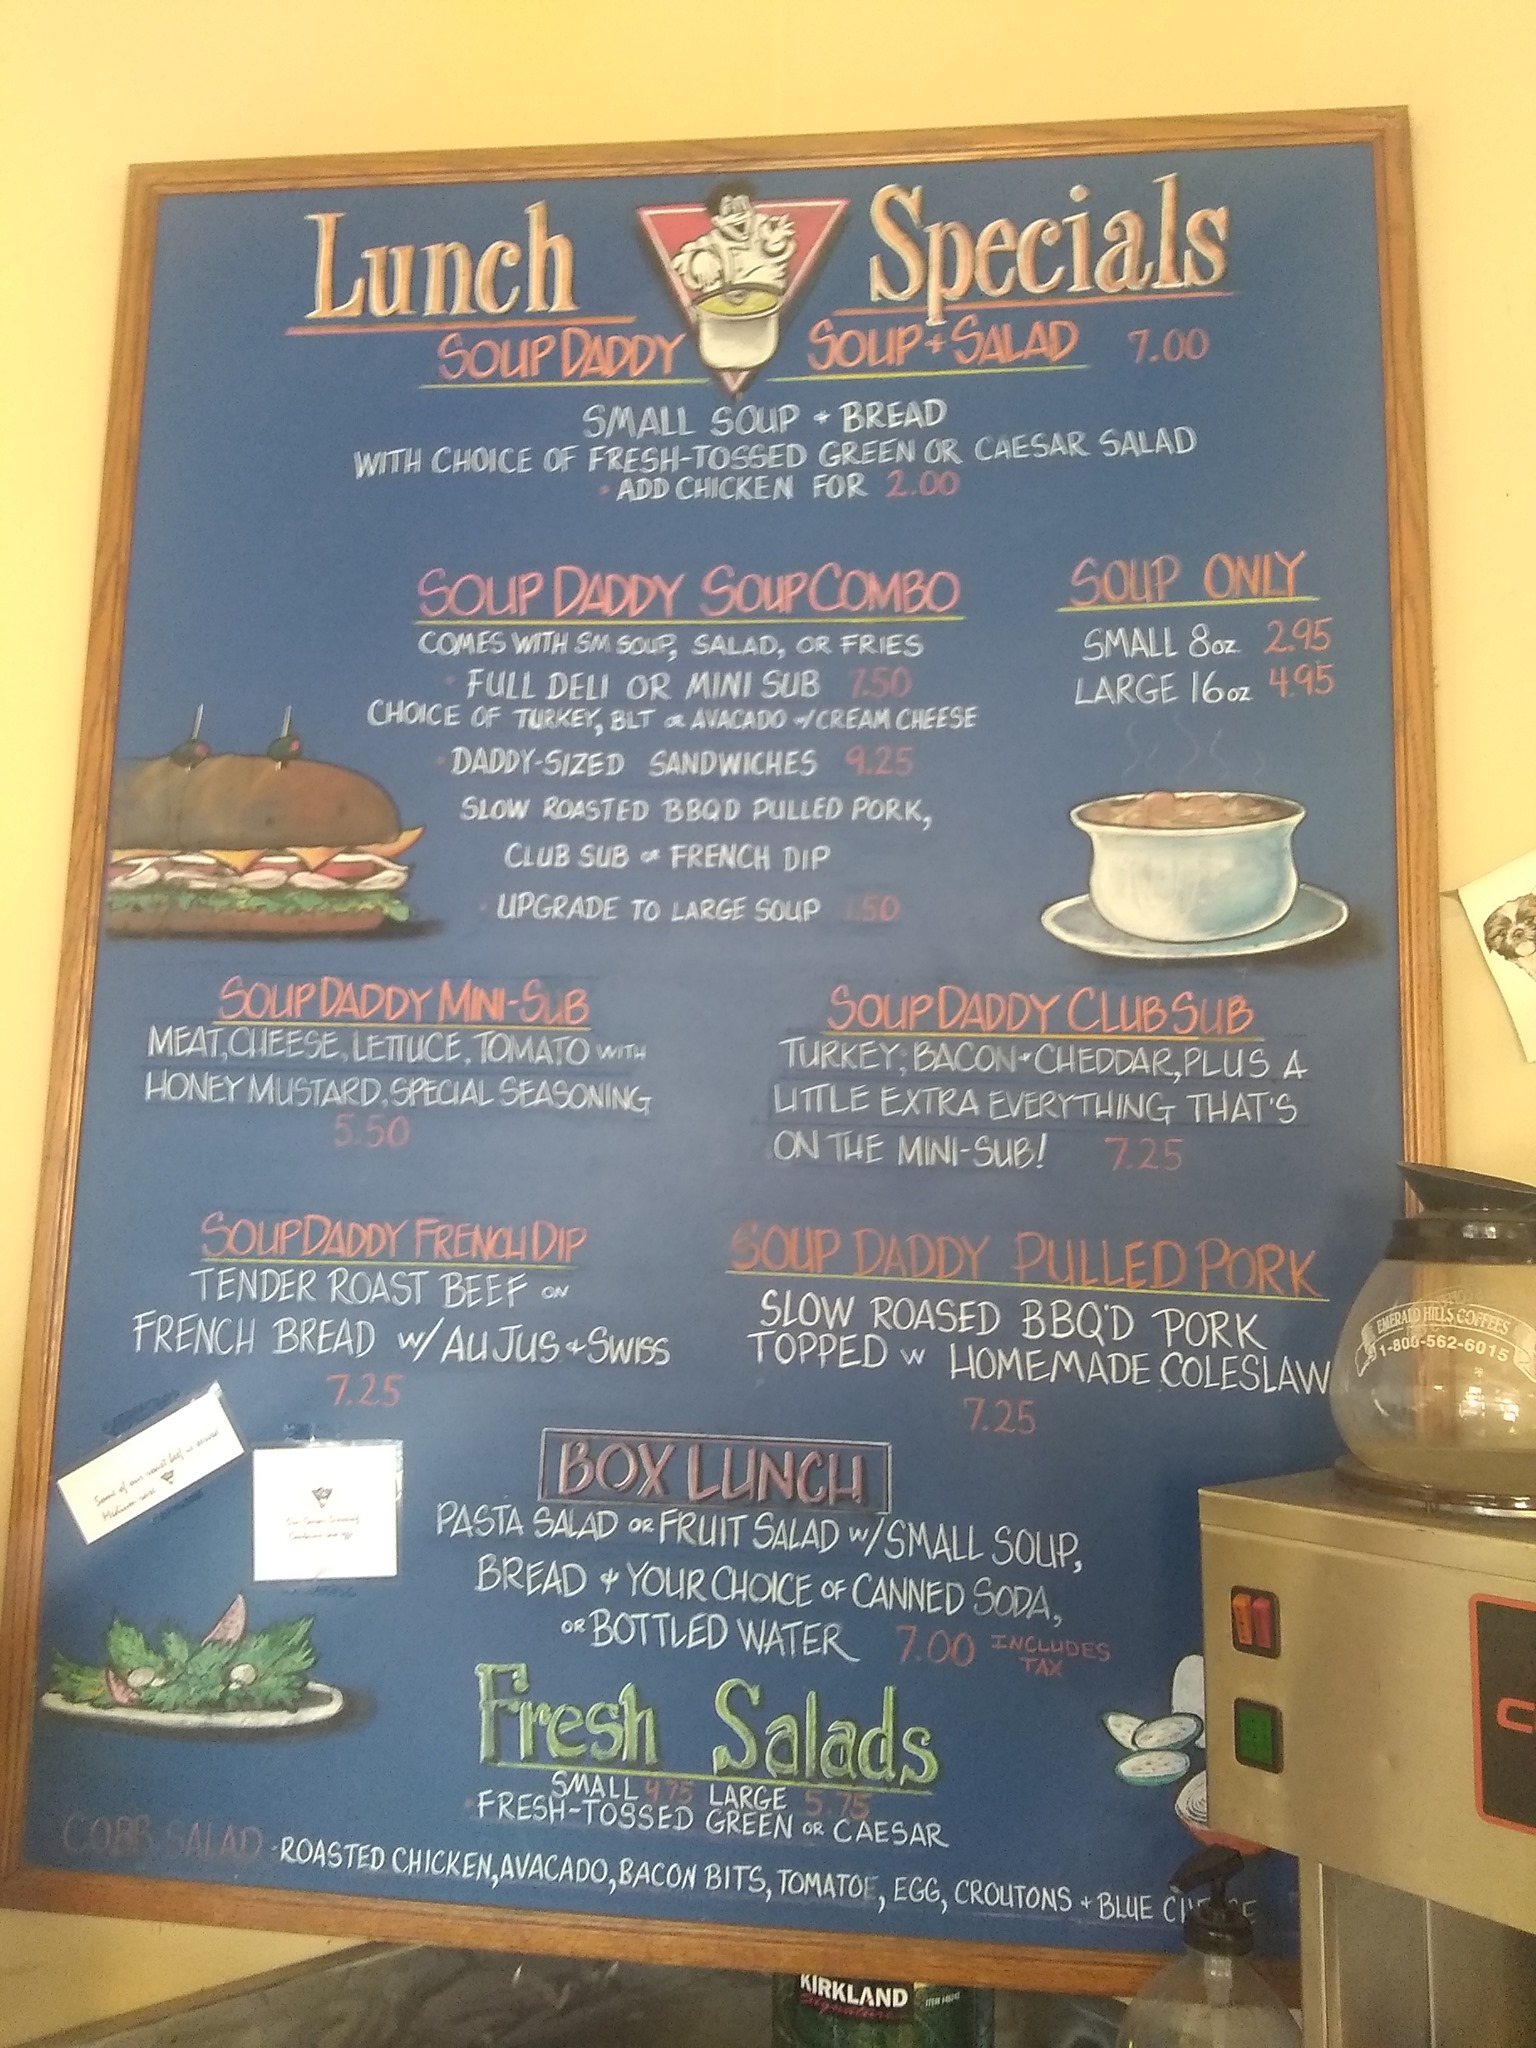 Lunch Specials
SOUP DADDY SOUP + SALAD 7.00
SMALL SOUP + BREAD
WITH CHOICE OF FRESH-TOSSED GREEN OR CAESAR SALAD
• ADD CHICKEN FOR 2.00
SOUP DADDY SOUP COMBO
COMES WITH SM SOUP, SALAD, OR FRIES
• FULL DELI OR MINI SUB 7.50
CHOICE OF TURKEY, BLT OR AVACADO W/CREAM CHEESE
• DADDY-SIZED SANDWICHES 9.25
SLOW ROASTED BBQD PULLED PORK,
CLUB SUB OR FRENCH DIP
• UPGRADE TO LARGE SOUP 1.50
SOUP ONLY
SMALL 8oz 2.95
LARGE 16oz 4.95
SOUP DADDY MINI-SUB
MEAT, CHEESE, LETTUCE, TOMATO WITH
HONEY MUSTARD, SPECIAL SEASONING
5.50
SOUP DADDY CLUB SUB
TURKEY, BACON + CHEDDAR, PLUS A
LITTLE EXTRA EVERYTHING THAT'S
ON THE MINI-SUB! 7.25
SOUP DADDY FRENCH DIP
TENDER ROAST BEEF ON
FRENCH BREAD W/ AU JUS + SWISS
7.25
SOUP DADDY PULLED PORK
SLOW ROASED BBQ'D PORK
TOPPED W HOMEMADE COLESLAW
7.25
Some of our roast beef is served
Medium rare
BOX LUNCH
PASTA SALAD OR FRUIT SALAD W/ SMALL SOUP,
BREAD + YOUR CHOICE OF CANNED SODA,
OR BOTTLED WATER 7.00 INCLUDES
TAX
Fresh Salads
SMALL 4.75 LARGE 5.75
• FRESH-TOSSED GREEN OR CAESAR
COBB SALAD - ROASTED CHICKEN, AVACADO, BACON BITS, TOMATOE, EGG, CROUTONS + BLUE
EMERALD HILLS COFFEES
1-800-562-6015
KIRKLAND
Signature